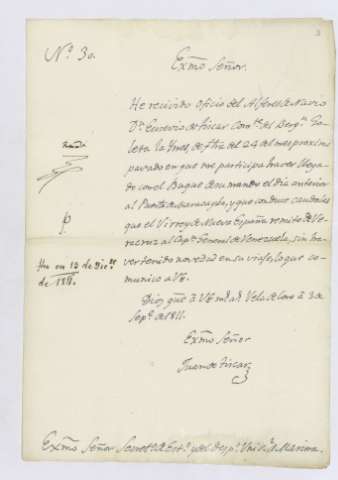 Nº 30.
Exmo Señor.
He recivido oficio del Alferez de Navio
Dn. Eusevio de Tiscar Comte. del Bergn. Go-
leta la Ynes de fha del 24 del mes proximo
pasado en que me participa haver llega-
do con el Buque de su mando el dia anterior
al Puerto de Maracaybo, y que conduce caudales
que el Virrey de Nueva España remite de Ve-
racruz al Capn. General de Venezuela, sin ha-
ver tenido novedad en su viaje, lo que co-
munico a VE
Dios gue. á VE ms. as. Vela de Coro á 3 de
Sepe. de 1811.
Exmo Señor
Juan de Tiscar
fho en 13 de Dice.
de 1811.
Exmo Señor Secreto. de Esto. y del Despo. Unil. de Marina.